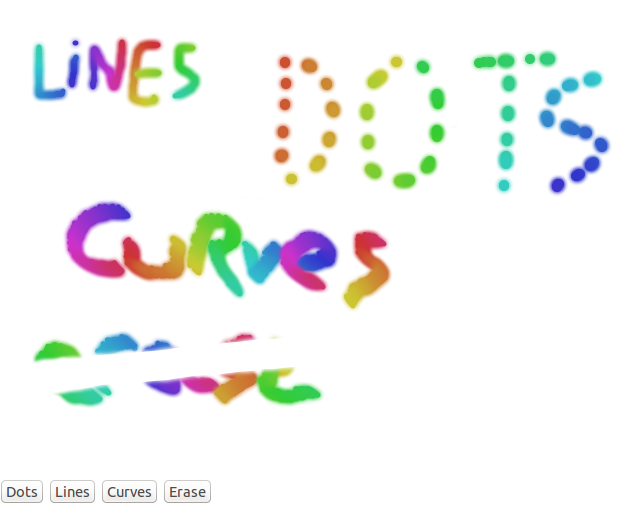 LiNES
DOTS
Curves
Dots Lines Curves Erase